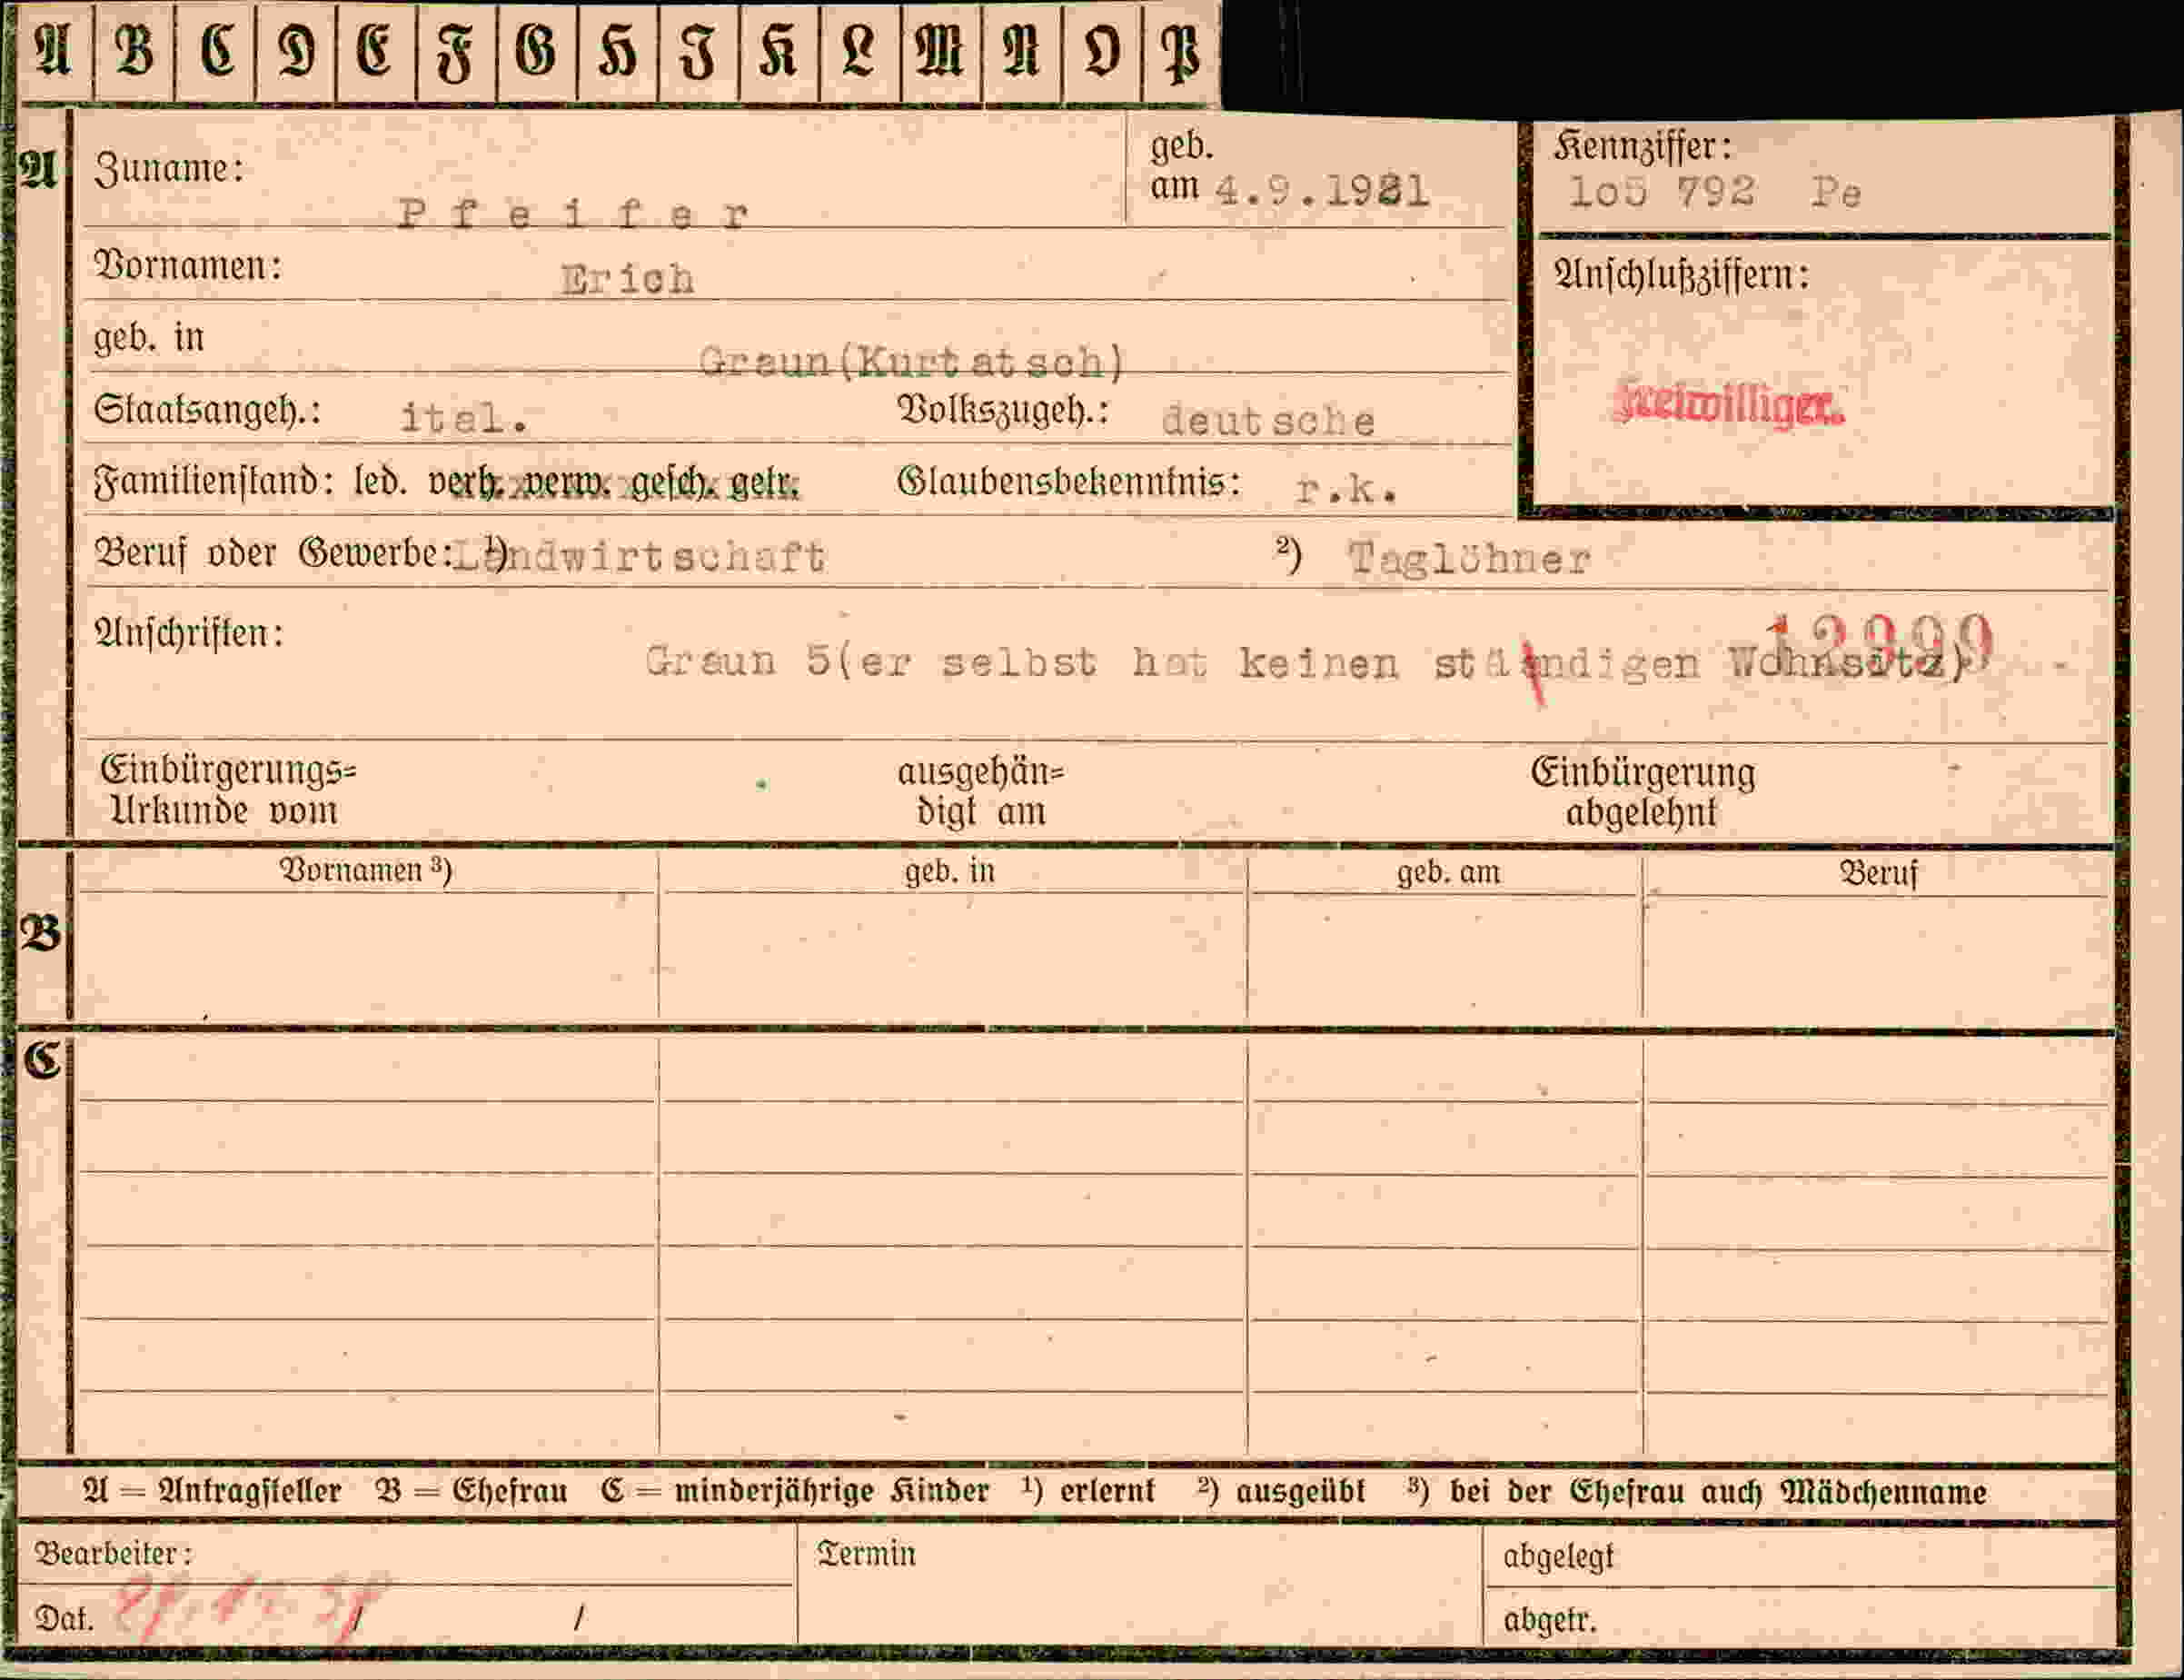 A B C D E F G H I K L M N O P
A Zuname: Pfeifer geb. am 4.9.1921 Kennziffer: 1o5 792 Pe
Vornamen: Erich Anschlußziffern:
geb. in Graun(Kurtatsch)
Freiwilliger.
Staatsangeh.: ital. Volkszugeh.: deutsche
Familienstand: led. verh. verw. gesch. getr. Glaubensbekenntnis: r.k.
Beruf oder Gewerbe: ¹) Landwirtschaft ²) Taglöhner
12999
Anschriften: Graun 5(er selbst hat keinen ständigen Wohnsitz)
Einbürgerungs= ausgehän= Einbürgerung
Urkunde vom digt am abgelehnt
B Vornamen ³) geb. in geb. am Beruf
C
A = Antragsteller B = Ehefrau C = minderjährige Kinder ¹) erlernt ²) ausgeübt ³) bei der Ehefrau auch Mädchenname
Bearbeiter: Termin abgelegt
Dat. / / abgetr.